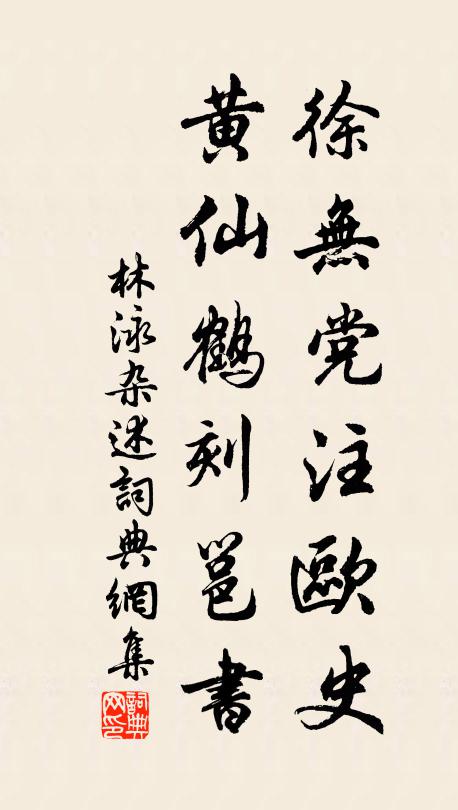 徐無党注歐史
黄仙鶴刻邕書
林泳杂述詞典網集
詞典網印